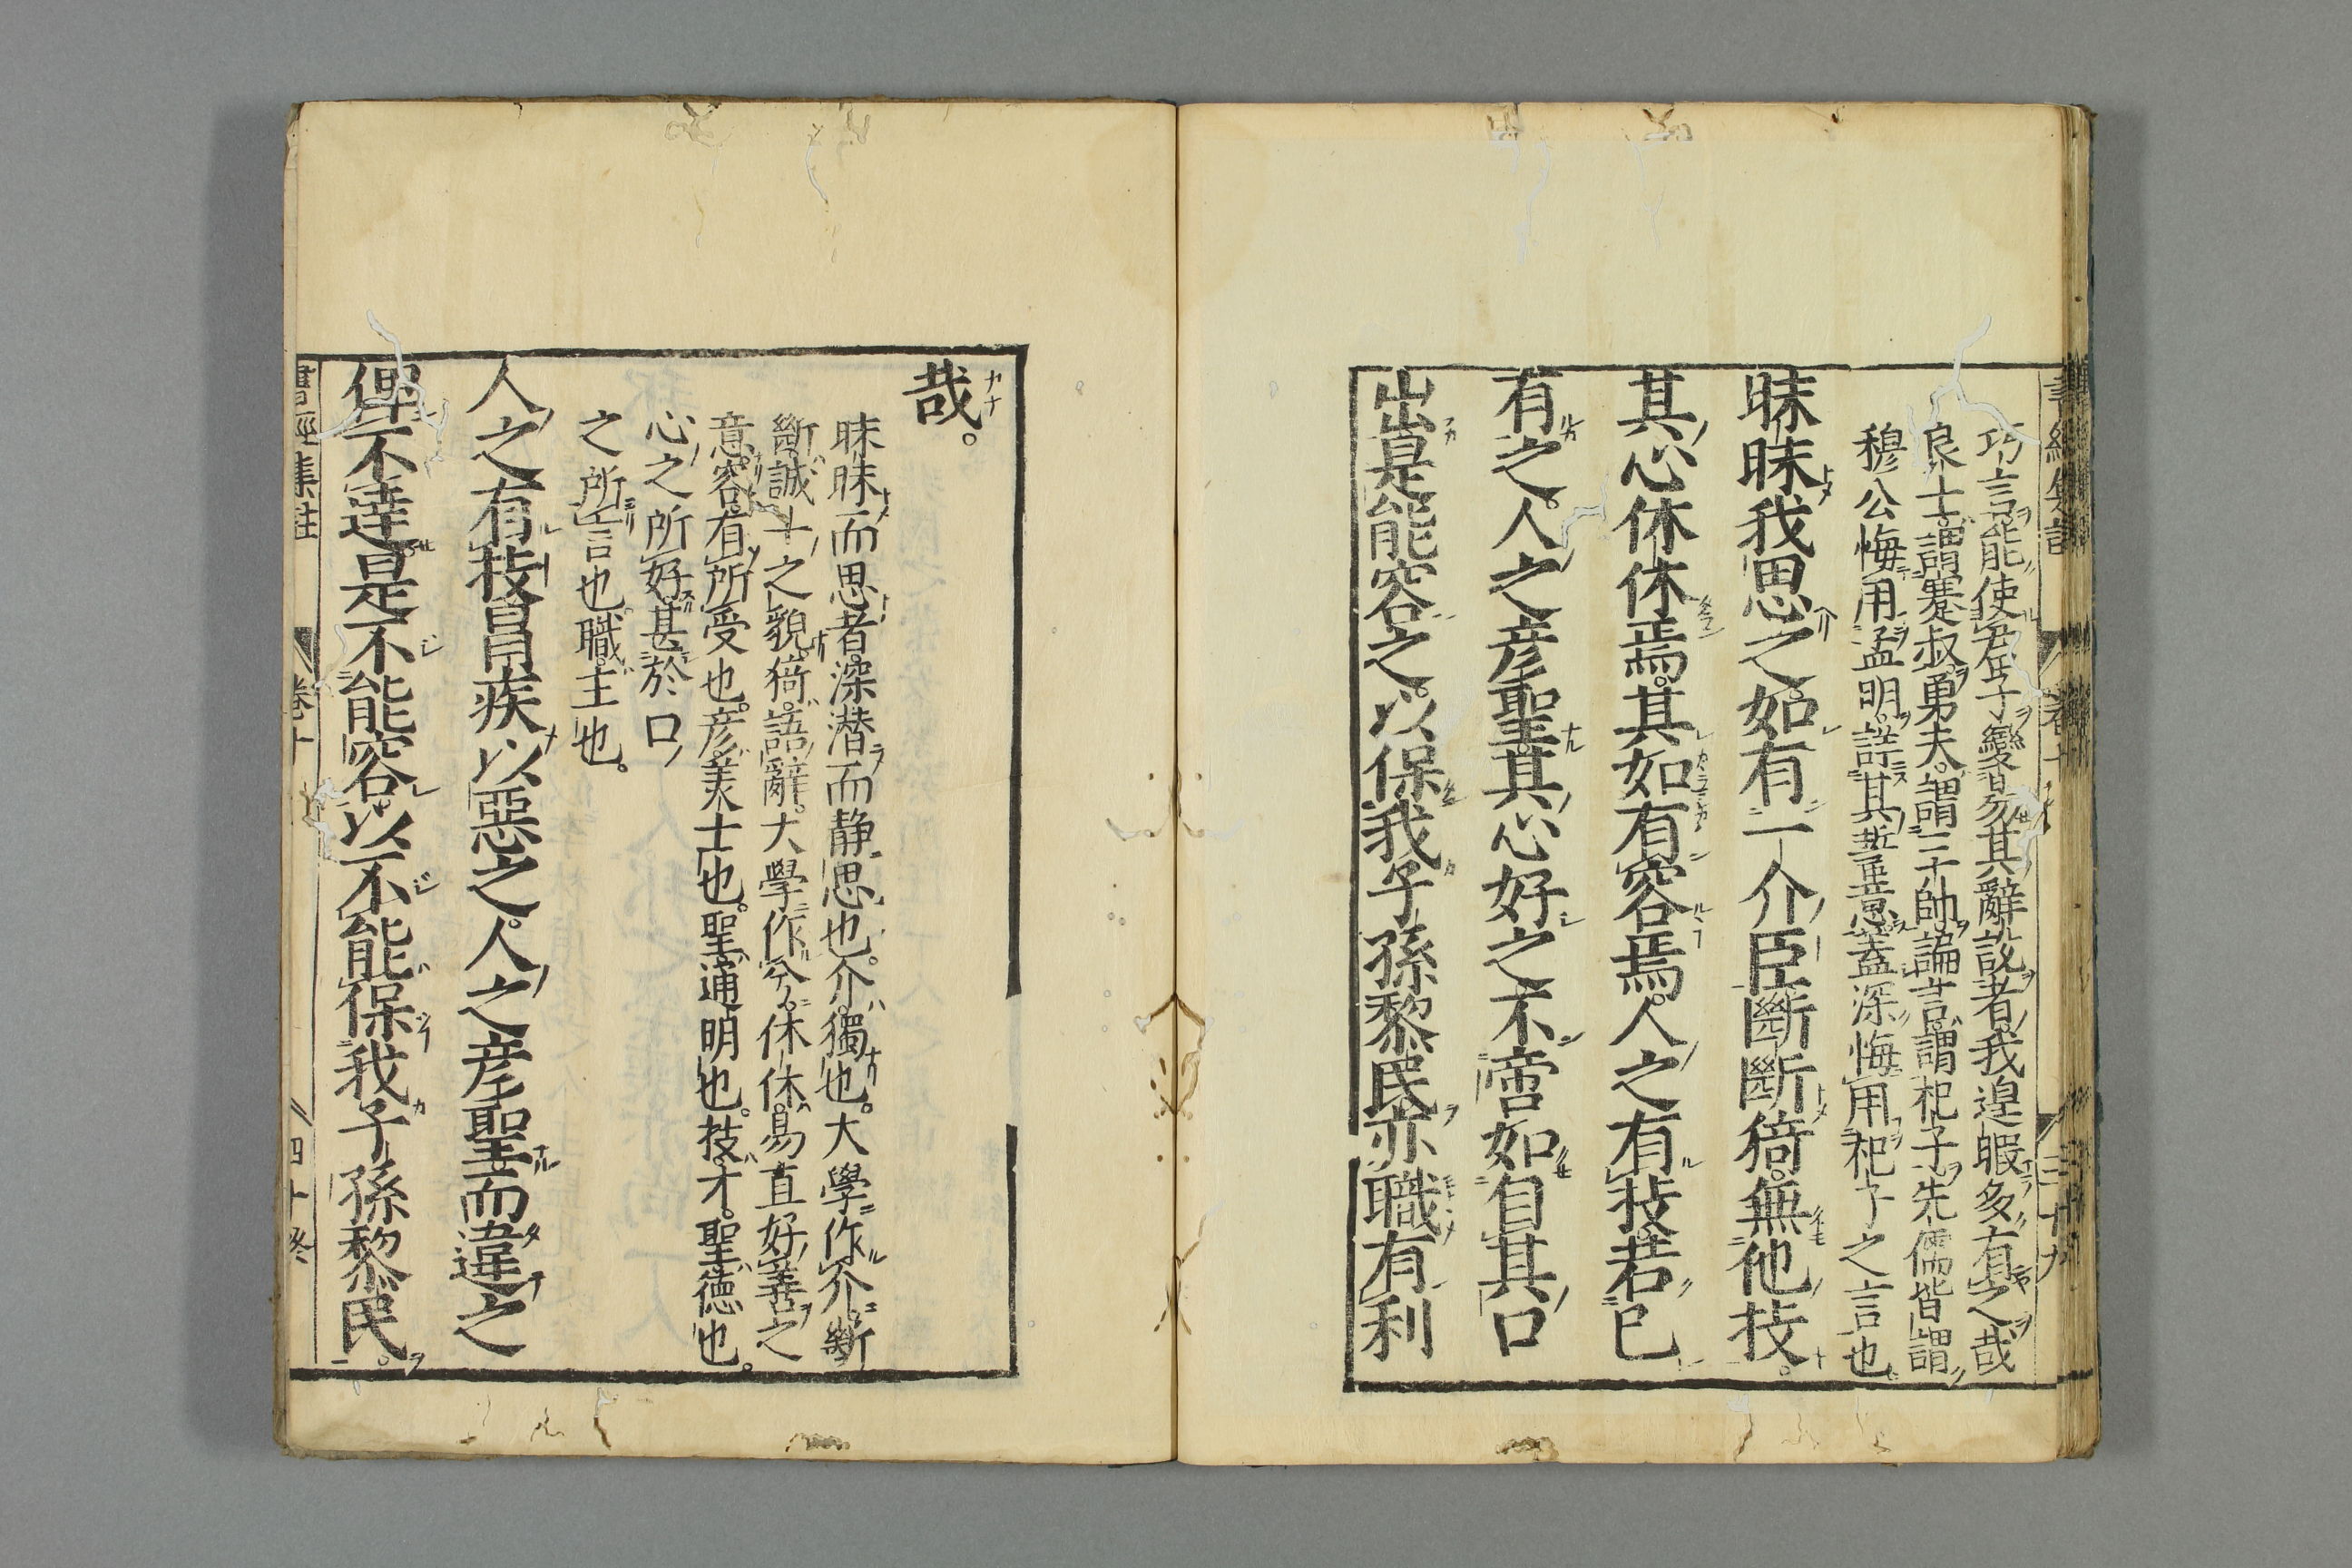 巧言能使君子變易其辭説者我遑暇多有之哉
良士謂蹇叔勇夫謂三帥諞言謂杞子先儒皆謂
穆公悔用孟明詳其誓意蓋深悔用杞子之言也
昧昧我思之如有一介臣斷斷猗無他技。
其心休休焉其如有容焉人之有技若已
有之。人之彦聖其心好之不啻如自其口
出是能容之以保我子孫黎民亦職有利
哉。
昧昧而思者深潜而静思也。介獨也。大學作个斷
斷誠一之貌猗語辭。大學作兮休休易直好善之
意容有所受也。彦美士也。聖通明也。技才。聖徳也。
心之所好甚於口
之所言也職主也。
人之有技冒疾以惡之。人之彦聖而違之
俾不逹是不能容以不能保我子孫黎民。
書經集註 巻十 四十終